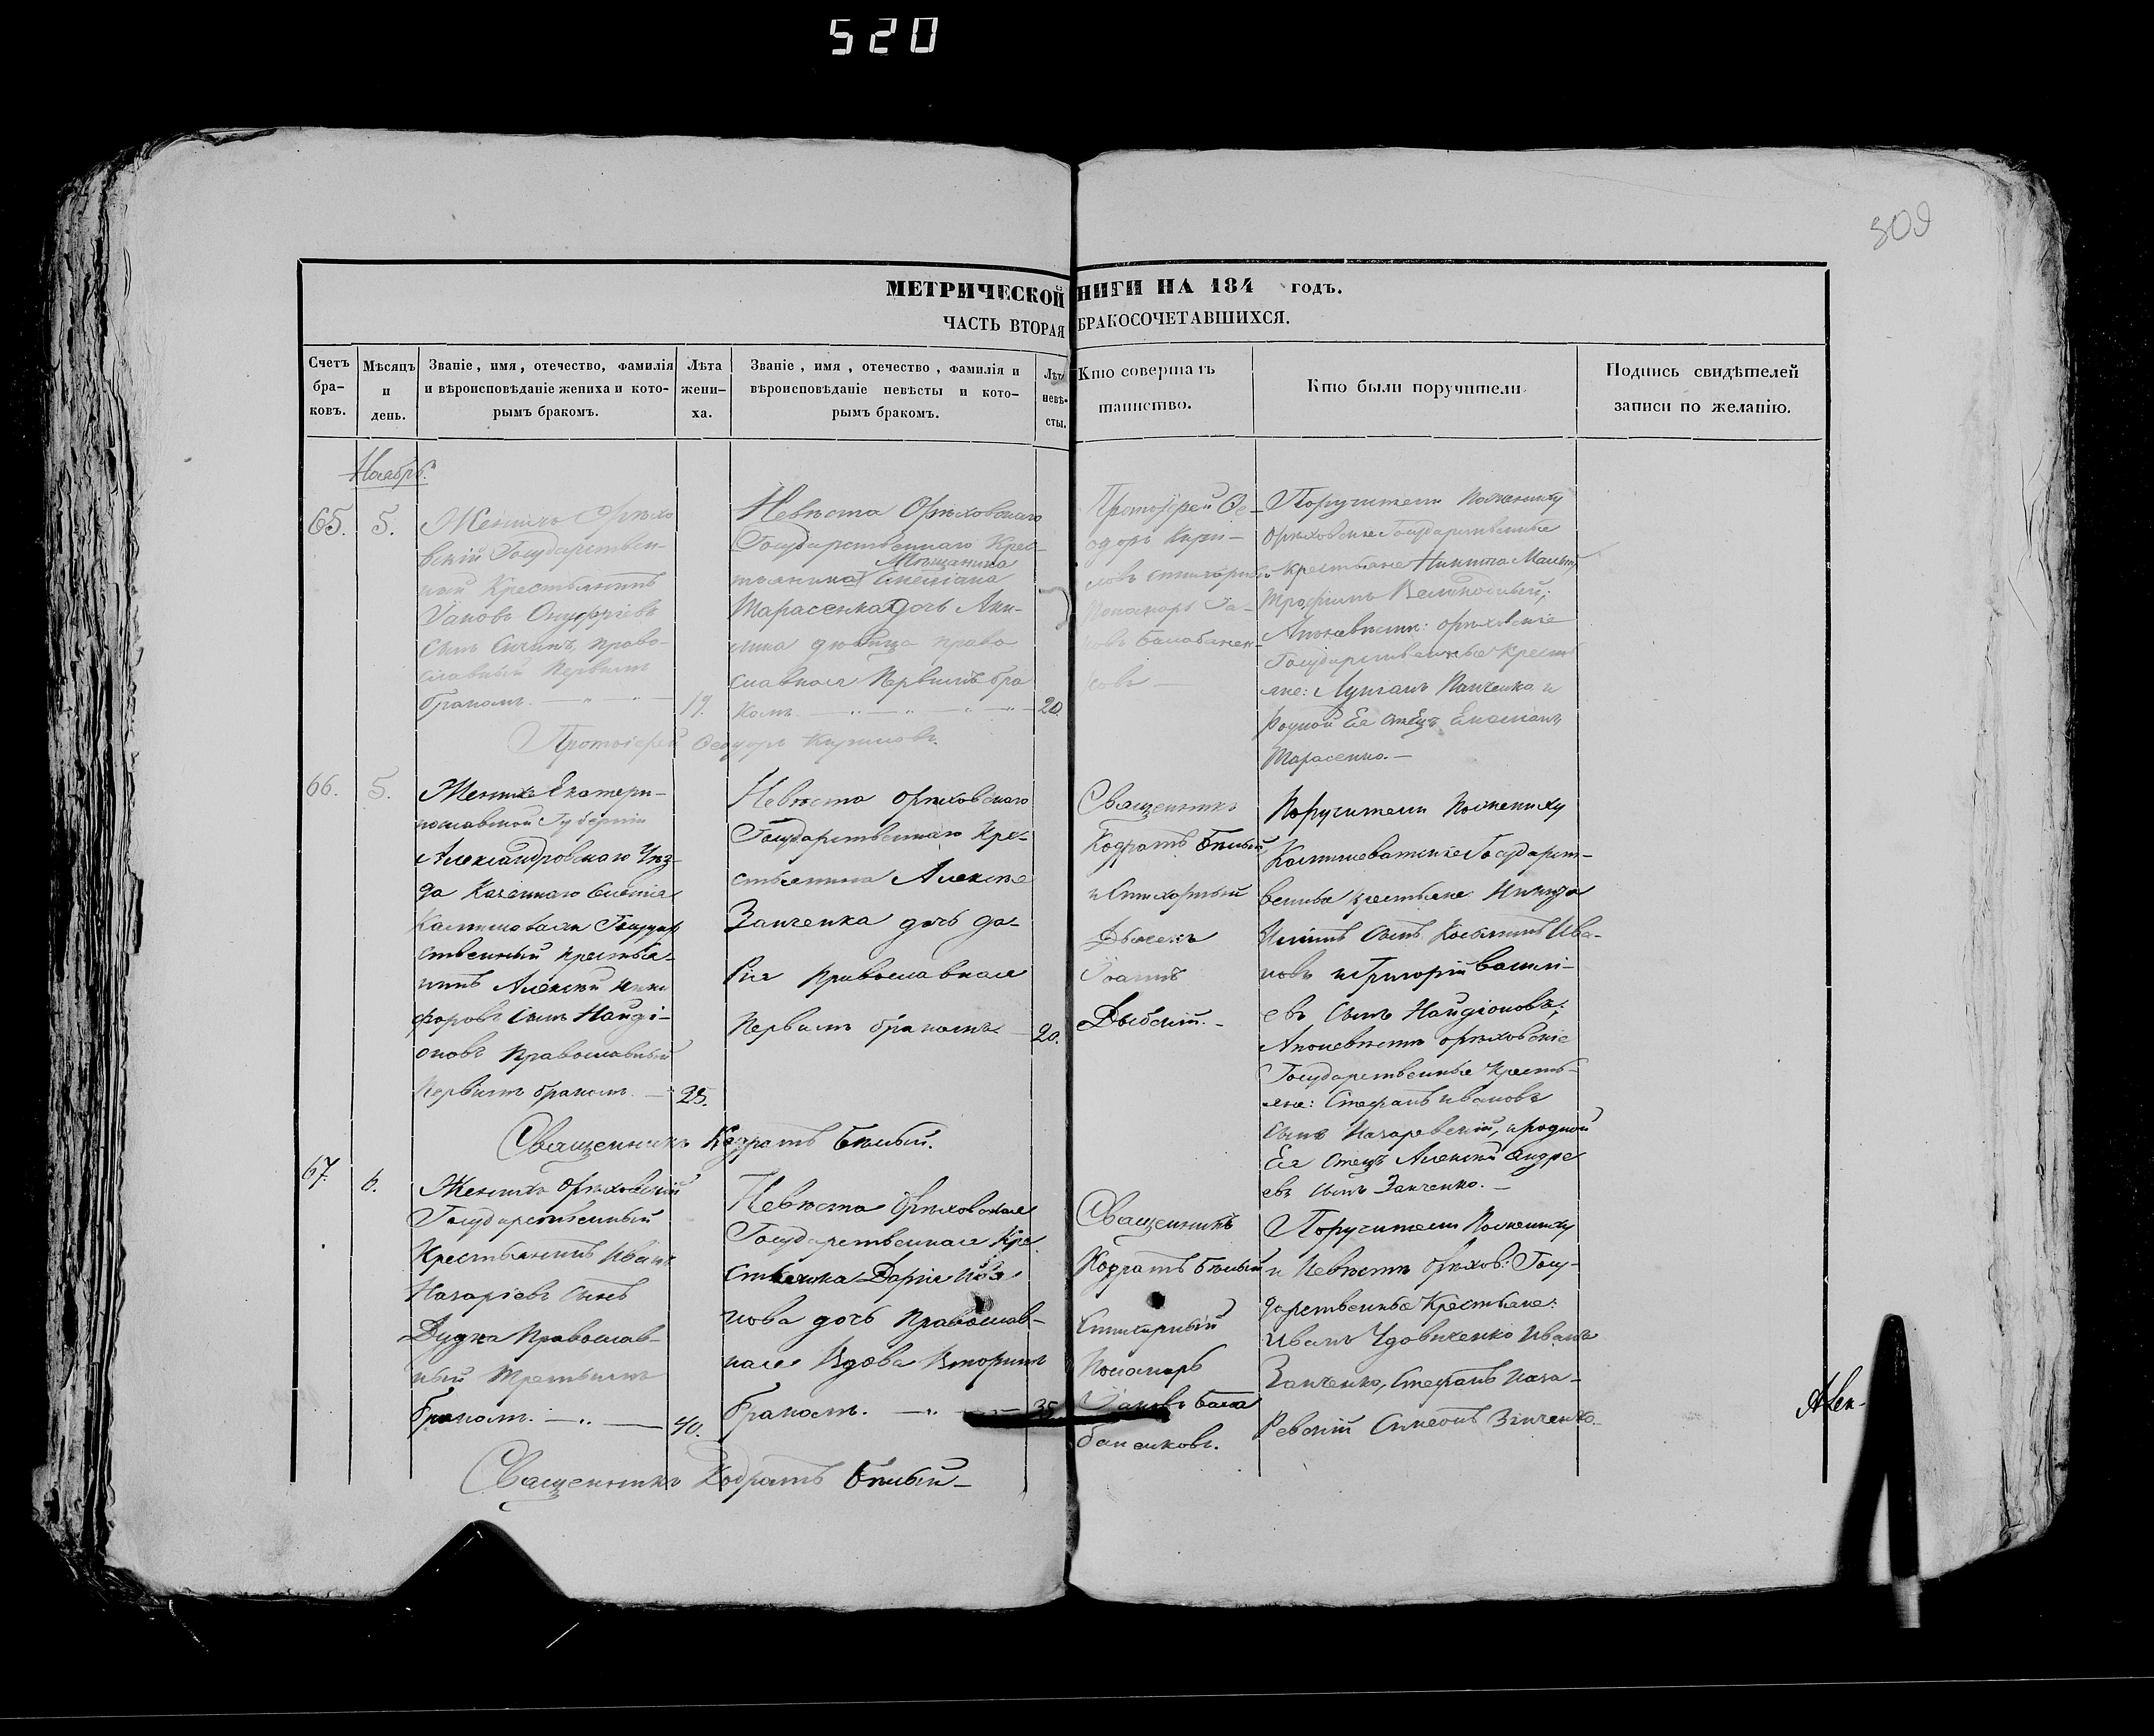 520
309
МЕТРИЧЕСКОЙ НИГИ НА 184 годъ.
ЧАСТЬ ВТОРАЯ БРАКОСОЧЕТАВШИХСЯ.
Счетъ бра- ковъ.
Мѣсяцъ и день.
Званіе, имя, отечество, фамилія и вѣроисповѣданіе жениха и кото- рымъ бракомъ.
Лѣта жени- ха.
Званіе, имя, отечество, фамилія и вѣроисповѣданіе невѣсты и кото- рымъ бракомъ.
Лѣт невѣ- сты.
Кто совершалъ таинство.
Кто были поручители
Подпись свидѣтелей записи по желанію.
Ноябрь.
65.
5.
Женихъ Орѣхо
вскій Государствен-
ный Крестьянинъ
Іаковъ Онуфріевъ
сынъ право-
славный Первымъ
бракомъ.
19.
Невѣста Орѣховскаго
Государственнаго Крес-
Мѣщанина
тьянина
Тарасенка дочь Аки-
лина дѣвица право
славная Первымъ бра
комъ.
20.
Протоіерей Ѳе-
одоръ Кири-
ловъ стихарный
Пономарь Іа-
ковъ Балабанен-
ковъ
Поручители Пожениху
Орѣховские Государственные
Крестьяне Никита
Трофимъ
Апоневѣсте: орѣховские
Государственные крестья
яне: Панченко и
родной Ее отецъ
Тарасенко.
Протоіерей Ѳеодоръ Кириловъ.
66.
5.
Женихъ Екатери-
нославской Губерніи
Александровскаго Уѣз-
да Казеннаго Селенія
Государ
ственный крестья-
нинъ Алексѣй Ники
форовъ сынъ Найді-
оновъ Православный
Первымъ бракомъ.
25.
Невѣста орѣховскаго
Государственнаго Кре-
стьянина Алексѣя
Занченка дочь Да-
рія Православная
Первымъ бракомъ
20.
Священникъ
Кодратъ Бѣлый,
и Стихарный
Дьячекъ
Іоаннъ
Дыбскій.
Поручители Пожениху
Государст-
венные крестьяне Никита
сынъ Ива-
новъ и Григорій Василі-
евъ сынъ Найдіоновъ;
Апоневѣсте орѣховскіе
Государственные Кресть-
яне: Стефанъ Ивановъ
сынъ Назаревскій, и родной
Ея отецъ Алексѣй Андре
евъ сынъ Занченко.
Священникъ Кодратъ Бѣлый.
67.
6.
Женихъ Орѣховскій
Государственный
Крестьянинъ Иванъ
Назаріевъ сынъ
Дудка Православ-
ный Третьимъ
бракомъ.
40.
Невѣста Орѣховская
Государственная Кре
стьянка Дарія Ива
нова дочь Православ-
ная Вдова Вторымъ
бракомъ.
35.
Священникъ
Кодратъ Бѣлый
Стихарный
Пономарь
Іаковъ Бала
баненковъ.
Поручители Пожениху
и Невѣсте Орѣхов: Госу-
дарственные Крестьяне:
Иванъ Удовиченко Иванъ
Занченко, Стефанъ Наза-
ревскій Симеонъ Зинченко.
Священникъ Кодратъ Бѣлый
Ален-